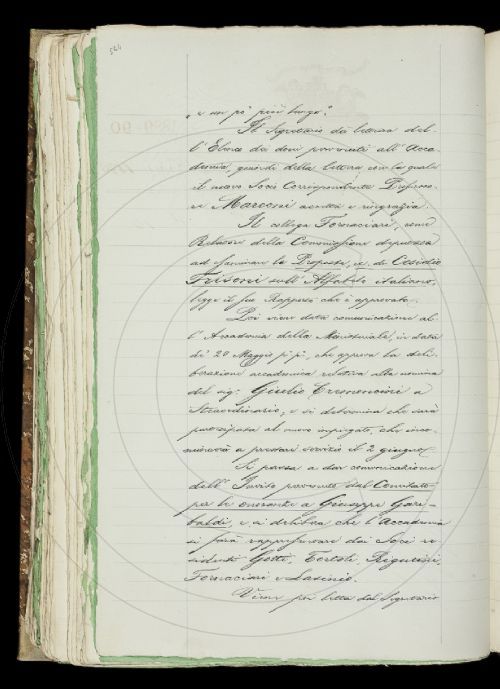 544
e un po' più lungo".
Il Segretario dà lettura del-
l'Elenco dei doni pervenuti all'Acca-
demia, quindi della lettera con la quale
il nuovo Socio Corrispondente Professo-
re Marconi accetta e ringrazia.
Il collega Fornaciari, come
Relatore della Commissione deputata
ad esaminare la Proposta di Cesidio
Frisoni sull'Alfabeto italiano,
legge il suo Rapporto che è approvato.
Poi viene data comunicazione al-
l'Accademia della Ministeriale, in data
di 28 Maggio p.p., che approva la deli-
berazione accademica relativa alla nomina
del sig. Giulio a
Straordinario, e si determina che sarà
partecipata al nuovo impiegato, che inco-
mincerà a prestar servizio il 2 giugno.
Si passa a dar comunicazione
dell'Invito pervenuto dal Comitato
per le onoranze a Giuseppe Gari-
baldi, e si delibera che l'Accademia
si farà rappresentare dai Soci re-
sidenti Gotti, Tortoli, Rigutini,
Fornaciari e
Viene poi letta dal Segretario